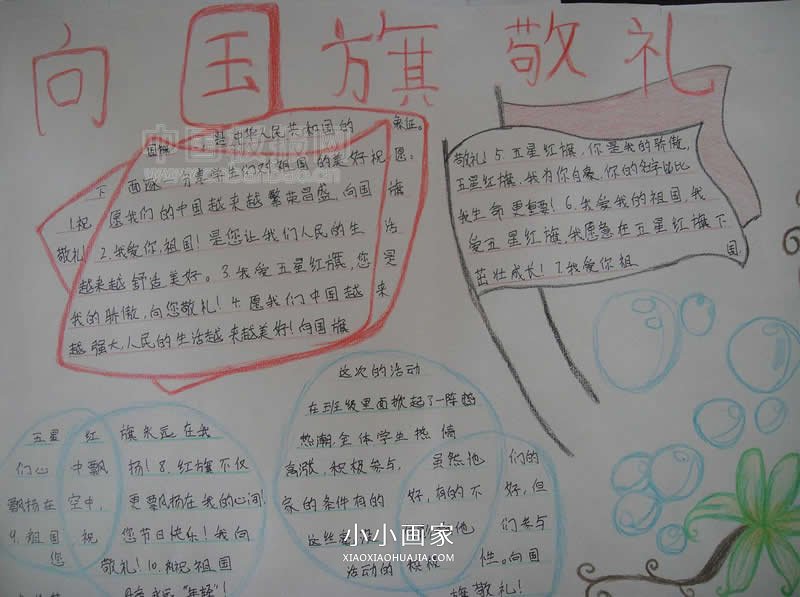 向国旗敬礼
国旗 是中华人民共和国的 象征。
下面 分享学生们对祖国的美好祝愿:
1.祝愿我们的中国越来越繁荣昌盛,向国旗
敬礼! 2.我爱你,祖国!是您让我们人民的生活
越来越舒适美好。3.我爱五星红旗,您是
我的骄傲,向您敬礼!4.愿我们中国越来
越强大,人民的生活越来越美好!向国旗
敬礼!5.五星红旗,你是我的骄傲,
五星红旗,我为你自豪,你的名字比
我生命更重要!6.我爱我的祖国,我
爱五星红旗,我愿意在五星红旗下
茁壮成长!7.我爱你祖国
五星红旗永远在我
们心中飘扬!8.红旗不仅
飘扬在空中,更飘扬在我的心间,
9.祖国祝您节日快乐!我向
您敬礼!10.祝祖国
"年轻"!
这次的活动
在班级里面掀起了一阵
热潮,全体学生热情
高涨,积极参与,虽然他们的
家的条件有的好,有的不好,但
这些 他们参与
活动的积极性。向国
旗敬礼!
中国板报网
小小画家
XIAOXIAOHUAJIA.COM